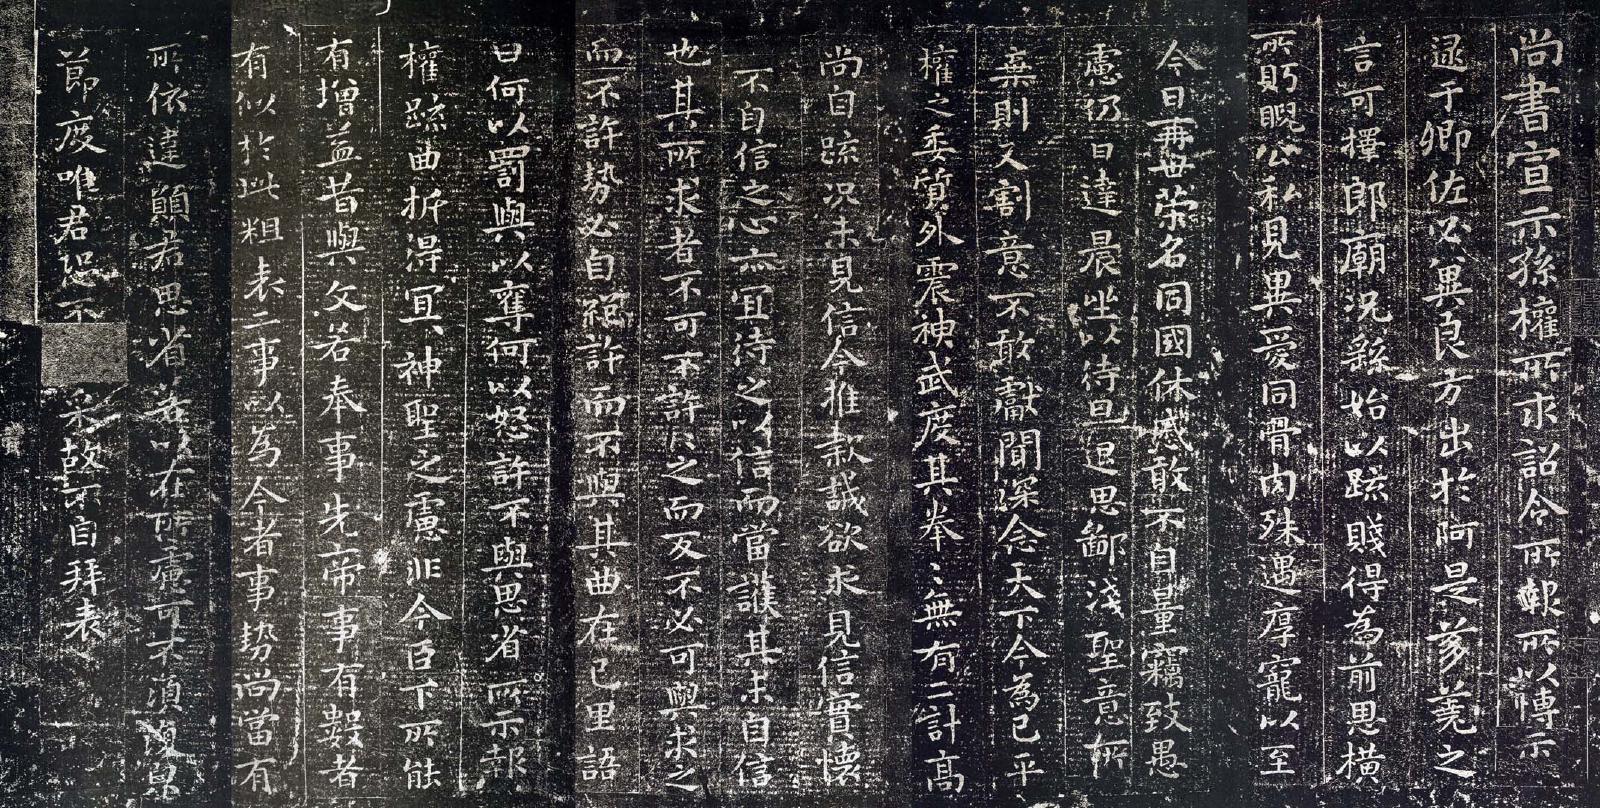 尚書宣示孫權所求詔令所報所以博示
逮于卿佐必異良方出於阿是芻蕘之
言可擇郎廟況繇始以疏賤得為前恩橫
所眄睨公私見異愛同骨肉殊遇厚寵以至
今日再世榮名同國休慼敢不自量竊致愚
慮仍日達晨坐以待旦退思鄙淺聖意所
棄則又割意不敢獻聞深念天下今為已平
權之委質外震神武度其拳〻無有二計高
尚自疏況未見信今推款誠欲求見信實懷
不自信之心亦宜待之以信而當護其未自信
也其所求者不可不許許之而反不必可與求之
而不許勢必自絕許而不與其曲在己里語
曰何以罰與以奪何以怒許不與思省所示報
權疏曲折得宜宜神聖之慮非今臣下所能
有增益昔與文若奉事先帝事有數者
有似於此粗表二事以為今者事勢尚當有
所依違願君思省若以在所慮可不須復
節度唯君恐不
采故不自拜表